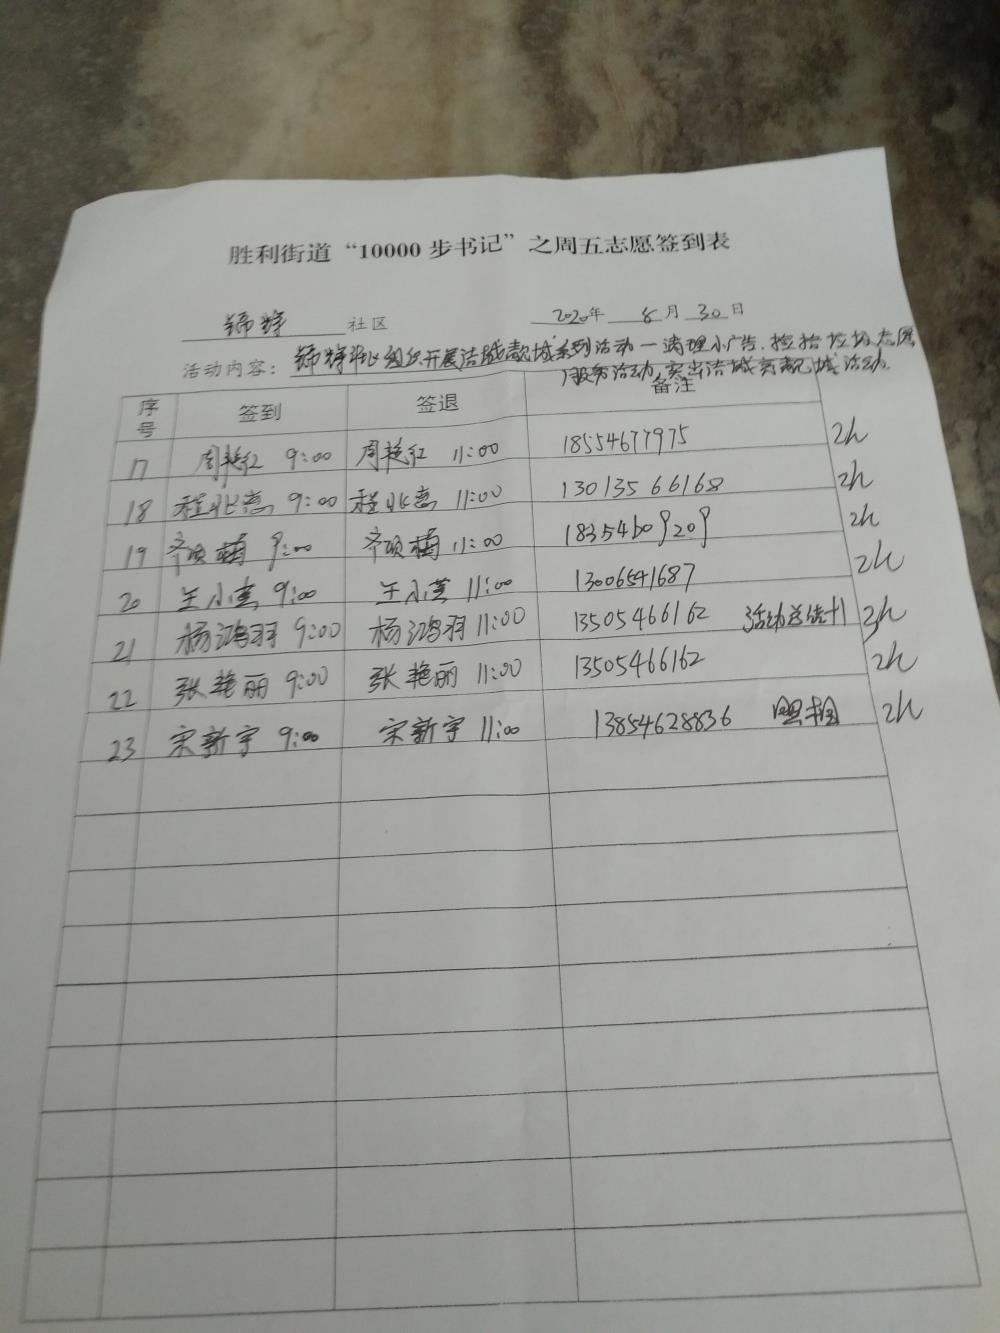 胜利街道“10000步书记”之周五志愿签到表
锦特 社区 2020年 8月 30日
活动内容：锦特社区组织开展洁城靓城系列活动一清理小广告、捡拾垃圾志愿
服务活动,突出洁城靓城活动.
序号 签到 签退 备注
17 周艳红 9:00 周艳红 11:00 18554677975 2h
18 程北燕 9:00 程北燕 11:00 13013566168 2h
19 齐项梅 9:00 齐项梅 11:00 18354609209 2h
20 王小 9:00 王小 11:00 13006541687 2h
21 杨鸿羽 9:00 杨鸿羽 11:00 13505466162 活动总统计 2h
22 张艳丽 9:00 张艳丽 11:00 13505466162 2h
23 宋新宇 9:00 宋新宇 11:00 13854628836 照相 2h